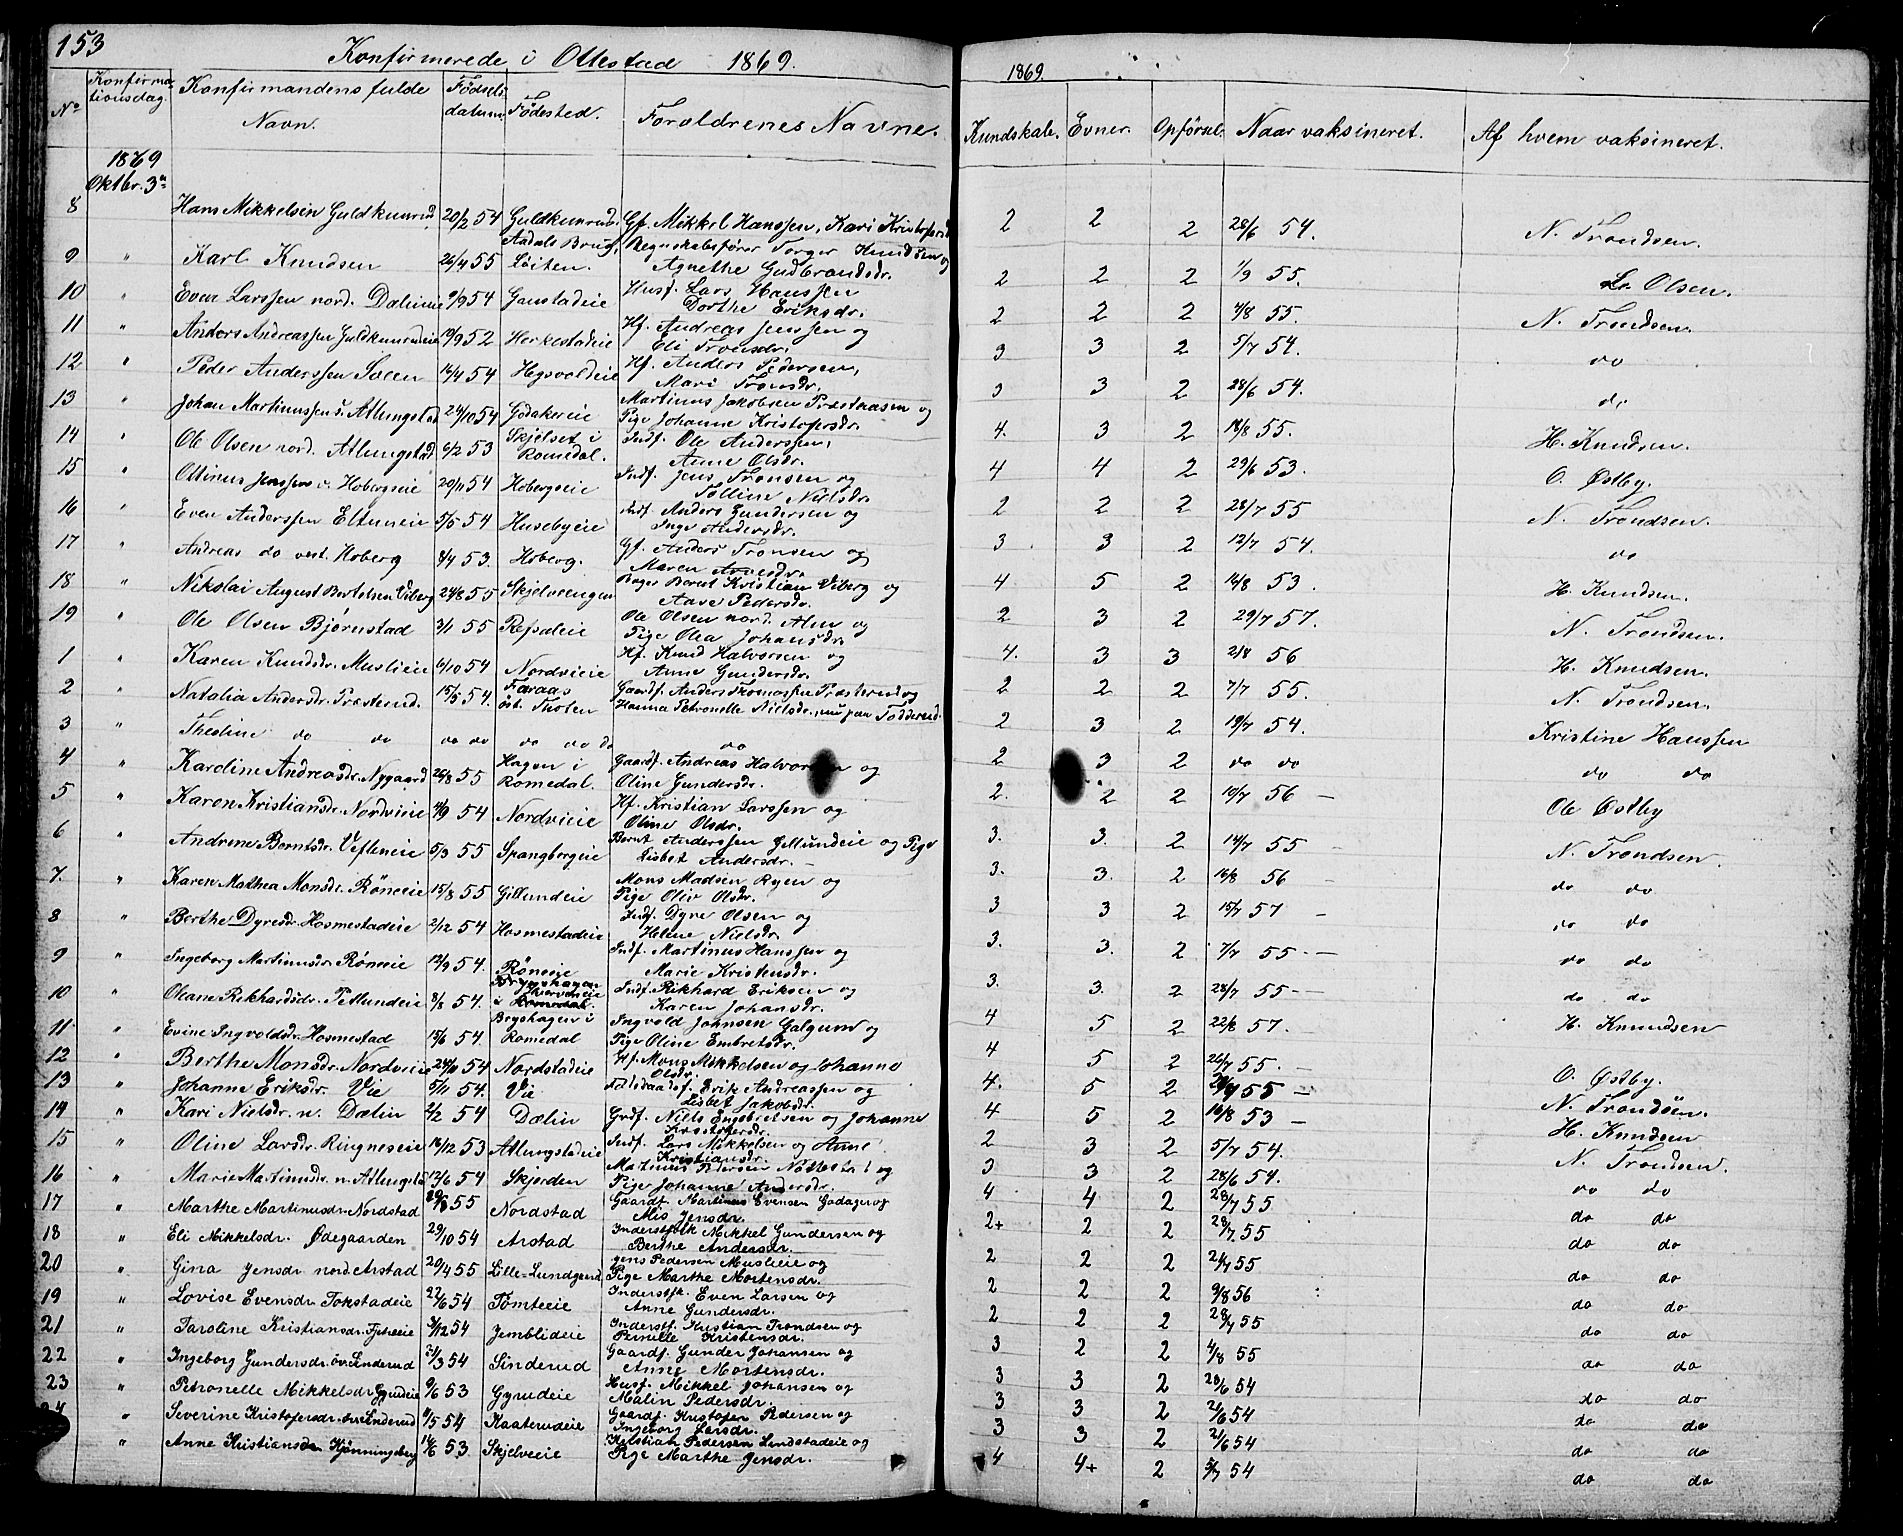 153
Konfirmerede i Ottestad 1869.
1869.
No Konfirmationsdag. Konfirmandens fulde Navn. Fødselsdatum. Fødested. Forældrenes Navne. Kundskab. Evner. Opførsel. Naar vaksineret. Af hvem vaksineret.
1869 Oktbr. 3
8 Hans Mikkelsen Guldkunrud 20/2 54 Guldkunrud Gf. Mikkel Hanssen, Kari Kristofersd 2 2 2 28/6 54. N. Trondsen.
9 " Karl Knudsen 26/4 55 Aadals Brug, Løiten. Regnskabsfører Torger Knudsen og Agnethe Gudbrandsdr. 2 2 2 1/9 55. L. Olsen.
10 " Even Larssen nord. Dæline 9/9 54 Gaustadeie Husf. Lars Hanssen Dorthe Eriksdr. 2 2 2 4/8 55. N. Trondsen.
11 " Anders Andreassen Guldkunrudeie 19/9 52 Herkestadeie Hf. Andreas Jenssen og Eli Tronsdr. 3 3 2 5/7 54. do
12 " Peder Anderssen Sveen 14/4 54 Hogsvoldeie Hf. Anders Pedersen, Mari Tronsdr. 3 3 2 28/6 54. do
13 " Johan Martinussen s. Atlungstad 24/10 54 Godakereie Martinus Jakobsen Præsthasen og Pige Johanne Kristofersdr. 4. 3 2 18/8 55. H. Knudsen.
14 " Ole Olsen nord. Atlungstad 6/2 53 Skjelset i Romedal. Indf. Ole Anderssen, Anne Olsdr. 4 4 2 29/6 53. O. Østby.
15 " Ottinus Jenssen v. Hobergseie 20/11 54 Hobergseie Indf. Jens Tronsen og Tolline Nielsdr. 2 2 2 28/7 55 N. Trondsen.
16 " Even Anderssen Eltuneie 5/5 54 Husebyeie Indf. Anders Gundersen og Inge Andersdr. 3 3 2 12/7 54. do
17 " Andreas do vest. Hoberg 8/4 53. Hoberg. Gf. Anders Tronsen og Maren Arnesdr. 4 5 2 16/8 53. H. Knudsen.
18 " Nikolai August Bertelsen Viberg 24/8 55 Skjelvængen Bager Bernt Kristian Viberg og Aase Pedersdr. 2 3 2 29/7 57. N. Trondsen.
19 " Ole Olsen Bjørnstad 3/1 55 Refsaleie Ole Olsen nord. Alm og Pige Olea Johansdr. 4. 3 3 2/8 56 H. Knudsen.
1 " Karen Knudsdr. Muslieie 6/10 54 Nordvieie Hf. Knud Halvorsen og Anne Gundersdr. 2 2 2 7/7 55. N. Trondsen.
2 " Natalia Andersdr. Præsterud. 15/5 54. Faraas øst. Thoten Gaardf. Anders Thomassen Præsterud og Hanna Petronelle Nielsdr., nu paa Fodderud. 2 3 2 19/7 54. Kristine Hanssen
3 " Theoline do do do do do do do do 2 3 2 do do do do
4 " Karoline Andreasdr. Nygaard 26/8 55 Hagen i Romedal. Gaardf. Andreas Halvorsen og Oline Gundersdr. 2. 2 2 10/7 56 Ole Østby
5 " Karen Kristiansdr. Nordvieie 11/9 54 Nordvieie Hf. Kristian Larssen og Oline Olsdr. 3. 3. 2 14/7 55 N. Trondsen.
6 " Andrene Berntsdr. Vefleneie 5/3 55 Spangbergeie Bernt Anderssen Gillundeie og Pige Lisbet Andersdr. 3. 3. 2 16/8 56 do do
7. " Karen Mathea Monsdr. Røneeie 15/8 55 Gillundeie Mons Madsen Ryen og Pige Oliv Olsdr. 3 3 2 15/7 57 do do
8 " Berthe Dyresdr. Hosmestadeie 2/12 54 Hosmestadeie Indf. Dyre Olsen og Helene Nielsdr. 3. 3. 2 7/7 55. do do
9 " Ingeborg Martinusdr. Røneeie 12/9 54. Røneeie Indf. Martinus Hanssen og Marie Kristensdr. 3. 3. 2 28/7 55 do do
10 " Oleane Rikhardsdr. Petlundeie 8/8 54. Indf. Rikhard Eriksen og Karen Johansdr. 4 5 2 22/8 57. H. Knudsen
11. " Evine Ingvoldsdr. Hosmestad 15/6 54. Bryshagen i Romedal Ingvold Johnsen Galgum og Pige Oline Embretsdr. 4 5 2 26/7 55. O. Østby.
12 " Berthe Monsdr. Nordvieie 24/11 54 Nordstadeie Hf. Mons Mikkelsen og Johanne Olsdr. 4. 5 2 55 N. Trondsen.
13 " Johanne Eriksdr. Vie 5/11 54. Vie Erik Andreassen og Lisbet Jakobsdr. 4 5 2 16/8 53 H. Knudsen
14 " Kari Nielsdr. n. Dælin 2/2 54 Dælin Grdf. Niels Engebretsen og Johanne Kristofersdr. 2 3 2 5/7 54. N. Trondsen.
15 " Oline Larsdr. Ringneseie 16/12 53 Atlungstadeie Indf. Lars Mikkelsen og Anne Kristiansdr. 3 3 2 28/6 54. do do
16 " Marie Martinusdr. n. Atlungstad 12/6 54 Skjørden Martinus Pedersen og Pige Johanne Andersdr. 4 4 2 28/7 55 do do
17 " Marthe Martinusdr. Nordstad 55 Nordstad Gaardf. Martinus Evensen Godager og Mis Jensdr. 2+ 2 2 28/7 55 do do
18 " Eli Mikkelsdr. Ødegaarden 29/10 54 Arstad Inderstfolk Mikkel Gundersen og Berthe Andersdr. 2 2 2 24/7 55 do do
20 " Gina Jensdr nord. Arstad 20/4 55 Lille-Lundgaard Jens Pedersen Muslieie og Pige Marthe Mortensdr. 2 2 2 9/8 56 do do
19 " Lovise Evensdr. Tokstadeie 22/6 54 Tomteeie Inderstf. Even Larsen og Anne Gundersdr. 2 2 2 28/7 55 do do
21 " Taroline Kristiansdr. Fjetreeie 3/12 54 Jemblideie Inderstf. Kristian Trondsen og Pernille Kristensdr. 3 2 2 4/8 55 do do
22 " Ingeborg Gundersdr. øv. Sinderud 31/3 54 Sinderud Gaardf. Gunder Johansen og Anne Mortensdr. 3 3 2 28/6 54 do do
23 " Petronelle Mikkelsdr. Gyrudeie 9/6 53 Gyrudeie Husf. Mikkel Johansen og Malin Pedersdr. 3 3 2 21/6 54 do do
24 " Severine Kristofersdr. Sinderud 11/5 54 Kaaterudeie Gaardf. Kristofer Pedersen og Ingeborg Larsdr. 3 3 2 21/6 54 do do
" Anne Kristiansdr. Hjønningsberg 14/6 53 Skjelveie Kristian Pedersen Lundstadeie og Pige Marthe Jensdr. 4 4+ 2 5/7 54 do do